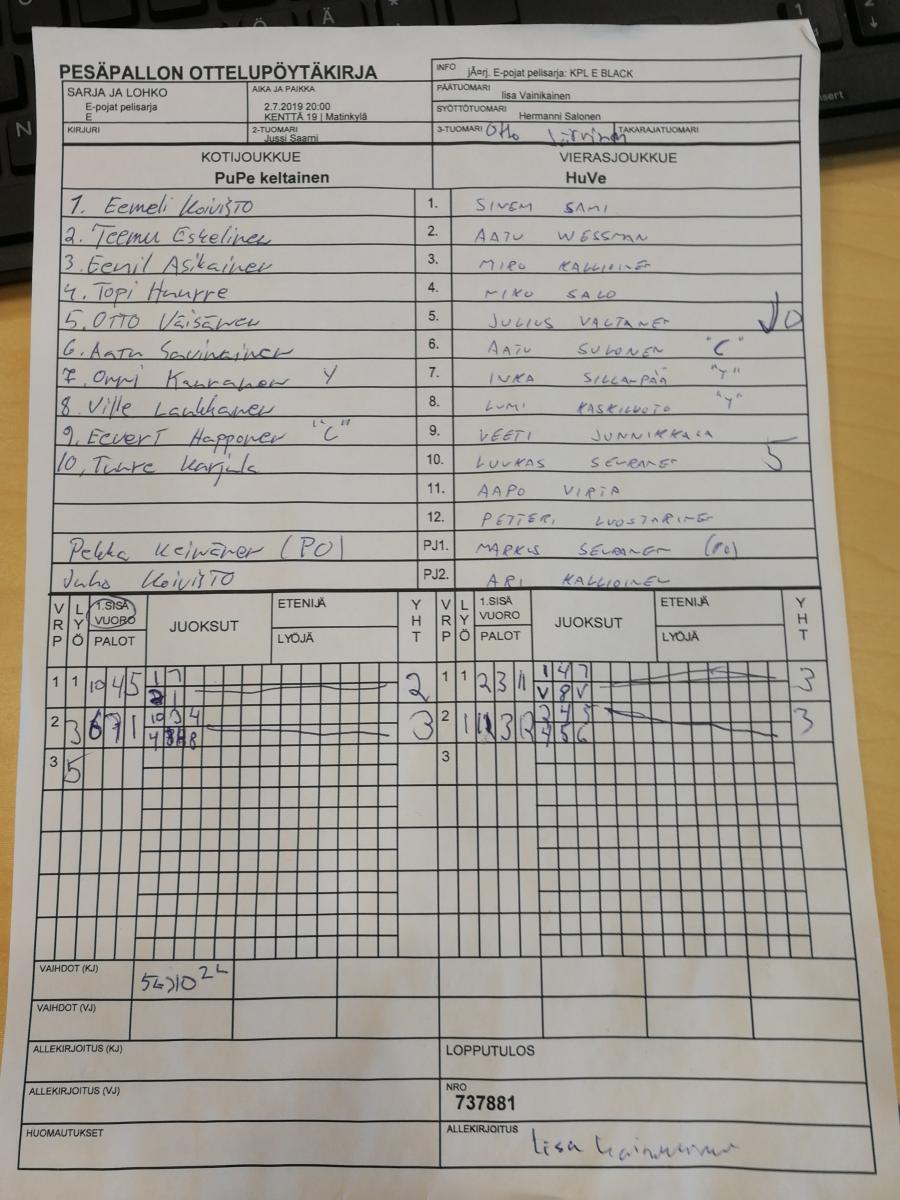 PESÄPALLON OTTELUPÖYTÄKIRJA
INFO jÃ¤rj. E-pojat pelisarja: KPL E BLACK
SARJA JA LOHKO
E-pojat pelisarja
E
AIKA JA PAIKKA
2.7.2019 20:00
KENTTÄ 19 | Matinkylä
PÄÄTUOMARI
Iisa Vainikainen
SYÖTTÖTUOMARI
Hermanni Salonen
KIRJURI
2-TUOMARI
Jussi Saarni
3-TUOMARI Otto Järvinen
TAKARAJATUOMARI
KOTIJOUKKUE
PuPe keltainen
VIERASJOUKKUE
HuVe
1. Eemeli Koivisto 1. SINEM SAMI
2. Teemu Eskelinen 2. AATU WESSMAN
3. Eemil Asikainen 3. MIRO KALLIOINEN
4. Topi Huurre 4. MIKO SALO
5. OTTO Väisänen 5. JULIUS VALTANEN 10
6. Aatu Savinainen 6. AATU SULONEN "C"
7. Onni Kauranen Y 7. INKA SILLANPÄÄ "Y"
8. Ville Laukkanen 8. LUMI KASKILUOTO "Y"
9. Eevert Happonen "C" 9. VEETI JUNNIKKALA
10. Tuure Karjula 10. LUUKAS SEURANEN 5
11. AAPO VIRTA
12. PETTERI LUOSTARINEN
Pekka Keinänen (PO) PJ1. MARKUS SEURANEN (PO)
Juho KOIVISTO PJ2. ARI KALLIOINEN
VRP LYÖ 1.SISÄ VUORO PALOT JUOKSUT ETENIJÄ LYÖJÄ YHT VRP LYÖ 1.SISÄ VUORO PALOT JUOKSUT ETENIJÄ LYÖJÄ YHT
1 1 10 4 5 1 7 2 1 1 2 3 11 1 4 7 3
1 V 8 V
2 3 6 7 1 10 3 4 3 2 3 4 5 3
4 8 4 5 6
3 5 3
VAIHDOT (KJ) 5->10 2L
VAIHDOT (VJ)
ALLEKIRJOITUS (KJ)
LOPPUTULOS
ALLEKIRJOITUS (VJ)
NRO
737881
HUOMAUTUKSET
ALLEKIRJOITUS
Iisa Vainikainen